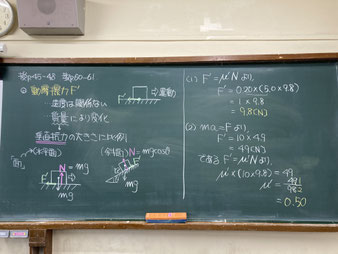 教p45-48 教p60-61
◎ 動摩擦力F'
運動
F'
…速度は関係ない
質量により変化
垂直抗力の大きさに比例
「例」
〈水平面〉
N = mg
N
mg
〈斜面〉N = mgcosθ
F'
N
θ
mg
(1) F' = μ'N より,
F' = 0.20 × (5.0 × 9.8)
= 1 × 9.8
= 9.8 [N]
(2) ma = F より,
F' = 10 × 4.9
= 49 [N]
である F' = μ'N より,
μ' × (10 × 9.8) = 49
= 0.50